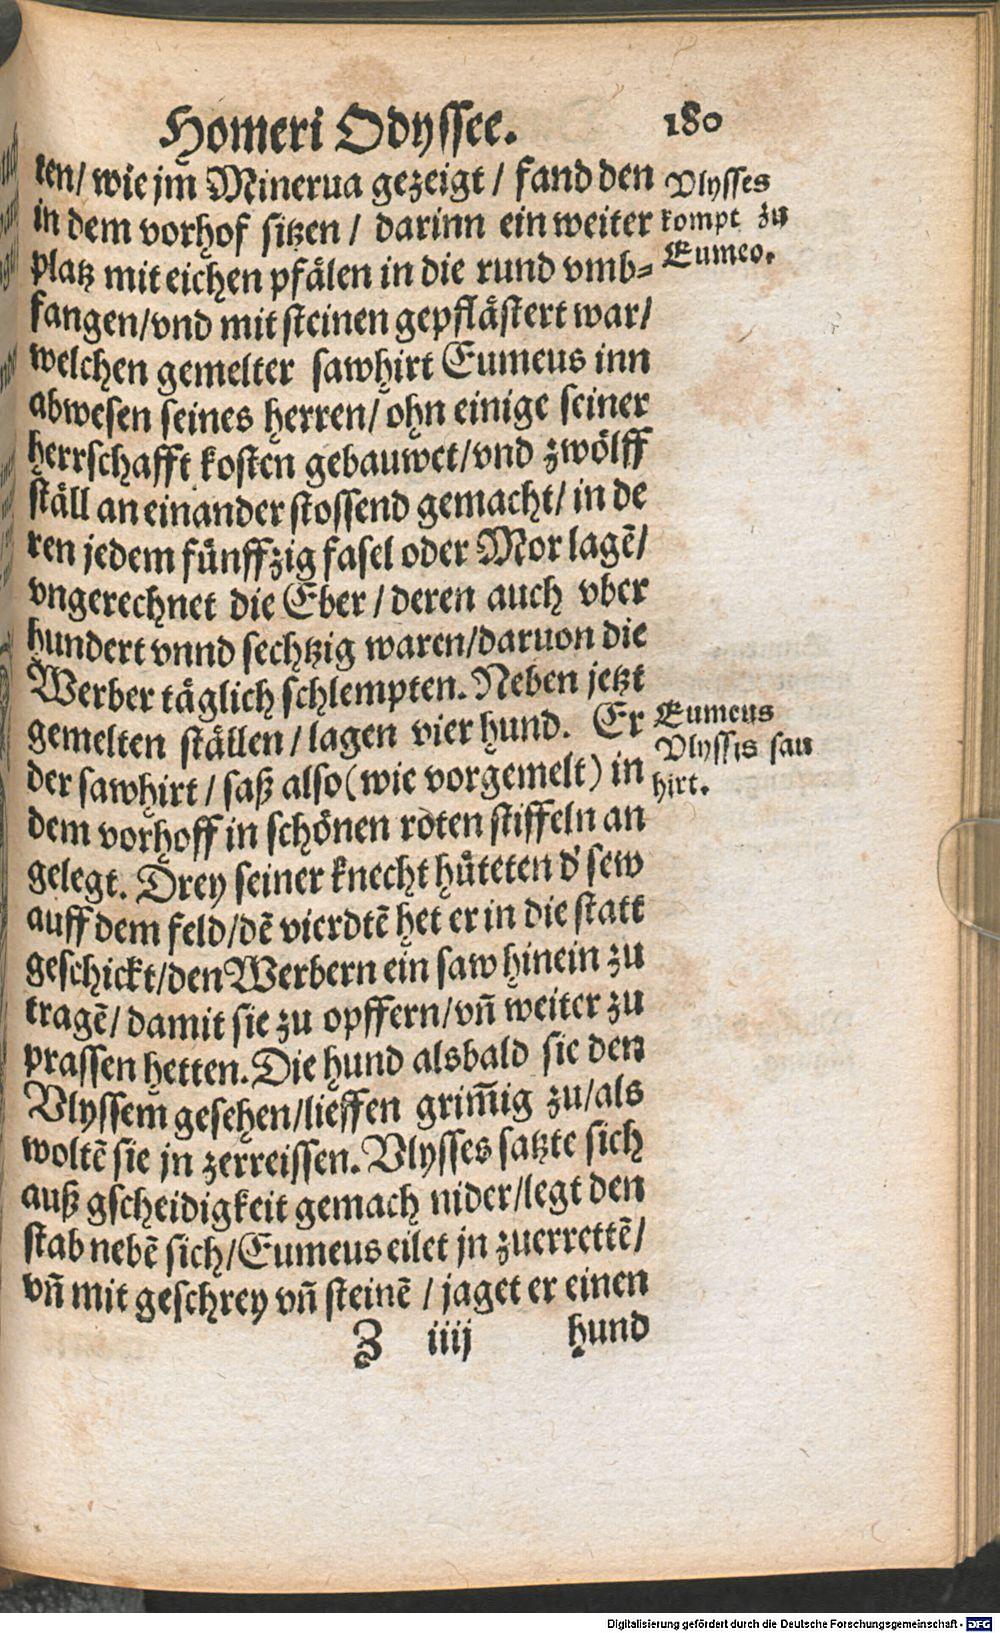 Homeri Odyssee. 180
ten/ wie jm Minerua gezeigt / fand den
in dem vorhof sitzen / darinn ein weiter
platz mit eichen pfälen in die rund vmb-
fangen/vnd mit steinen gepflästert war/
welchen gemelter sawhirt Eumeus inn
abwesen seines herren/ ohn einige seiner
herrschafft kosten gebauwet/vnd zwölff
ställ an einander stossend gemacht/ in de
ren jedem fünffzig fasel oder Mor lagē/
vngerechnet die Eber / deren auch vber
hundert vnnd sechtzig waren/daruon die
Werber täglich schlempten. Neben jetzt
gemelten ställen / lagen vier hund. Er
der sawhirt / saß also (wie vorgemelt) in
dem vorhoff in schönen roten stiffeln an
gelegt. Drey seiner knecht hüteten d' sew
auff dem feld/dē vierdtē het er in die statt
geschickt/den Werbern ein saw hinein zu
tragē/ damit sie zu opffern/vñ weiter zu
prassen hetten. Die hund alsbald sie den
Vlyssem gesehen/lieffen grim̄ig zu/als
woltē sie jn zerreissen. Vlysses satzte sich
auß gscheidigkeit gemach nider/legt den
stab nebē sich/Eumeus eilet jn zuerrettē/
vñ mit geschrey vñ steinē / jaget er einen
Z iiij hund
Vlysses
kompt zu
Eumeo.
Eumeus
Vlyssis sau
hirt.
Digitalisierung gefördert durch die Deutsche Forschungsgemeinschaft - DFG